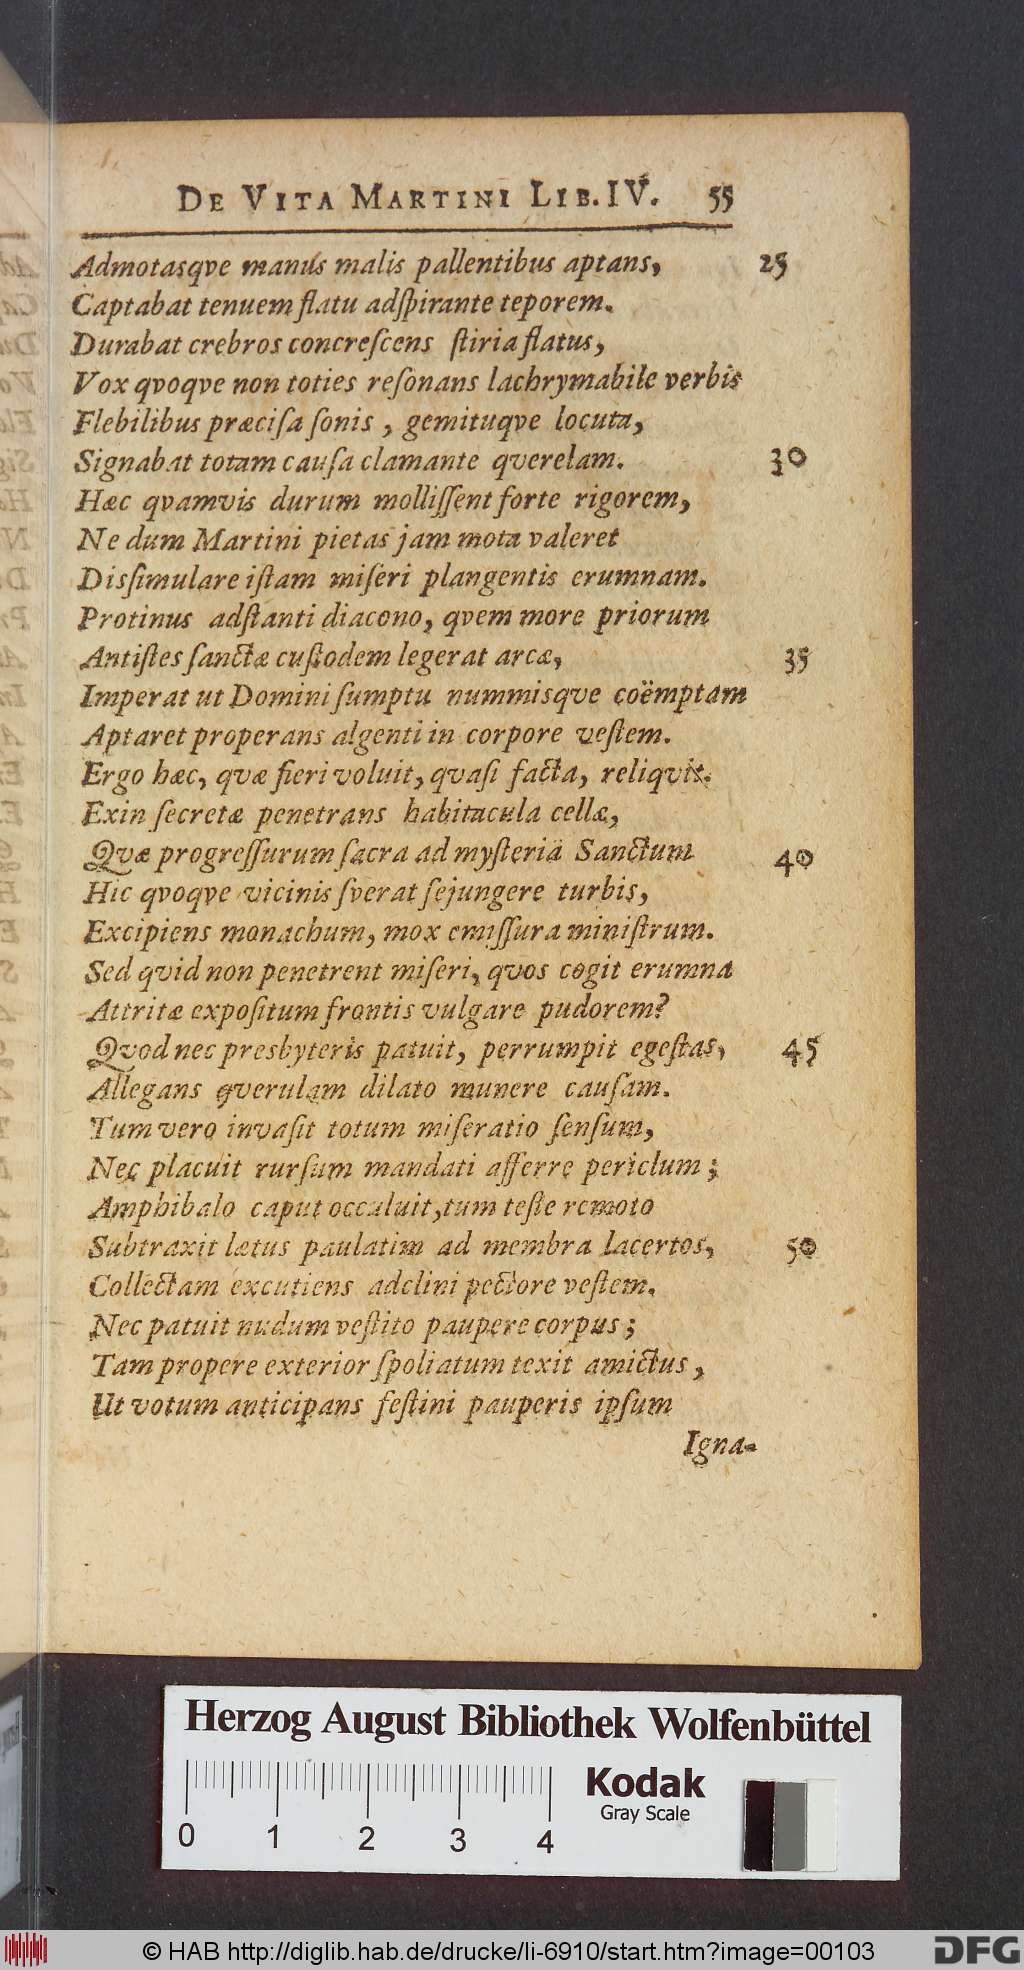 DE VITA MARTINI LIB. IV. 55
Admotasqve manus malis pallentibus aptans, 25
Captabat tenuem flatu adſpirante teporem.
Durabat crebros concreſcens ſtiria flatus,
Vox qvoqve non toties reſonans lachrymabile verbis
Flebilibus præciſa ſonis, gemituqve locuta,
Signabat totam cauſa clamante qverelam. 30
Hæc qvamvis durum molliſſent forte rigorem,
Ne dum Martini pietas jam mota valeret
Disſimulare iſtam miſeri plangentis erumnam.
Protinus adſtanti diacono, qvem more priorum
Antiſtes ſanctæ cuſtodem legerat arcæ, 35
Imperat ut Domini ſumptu nummisqve coëmptam
Aptaret properans algenti in corpore veſtem.
Ergo hæc, qvæ fieri voluit, qvaſi facta, reliqvit.
Exin ſecretæ penetrans habitacula cellæ,
Qvæ progreſſurum ſacra ad myſteria Sanctum 40
Hic qvoqve vicinis ſverat ſejungere turbis,
Excipiens monachum, mox emiſſura miniſtrum.
Sed qvid non penetrent miſeri, qvos cogit erumna
Attritæ expoſitum frontis vulgare pudorem?
Qvod nec presbyteris patuit, perrumpit egeſtas, 45
Allegans qverulam dilato munere cauſam.
Tum vero invaſit totum miſeratio ſenſum,
Nec placuit rurſum mandati afferre periclum;
Amphibalo caput occuluit, tum teſte remoto
Subtraxit lætus paulatim ad membra lacertos, 50
Collectam excutiens adclini pectore veſtem.
Nec patuit nudum veſtito paupere corpus;
Tam propere exterior ſpoliatum texit amictus,
Ut votum anticipans feſtini pauperis ipſum
Igna-
Herzog August Bibliothek Wolfenbüttel
Kodak
Gray Scale
0 1 2 3 4
© HAB http://diglib.hab.de/drucke/li-6910/start.htm?image=00103
DFG